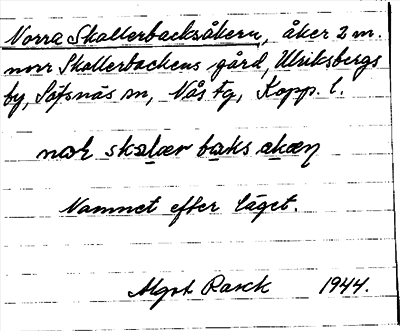 Norra Skallerbacksåkern, åker 2 m.
norr Skallerbackens gård, Ulriksbergs
by, Säfsnäs sn, Nås tg, Kopp. l.
Namnet efter läget.
Algot Rasck 1944.